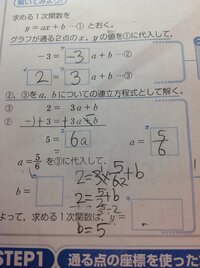 解いてみよう
求める1次関数を
y=ax+b …① とおく。
グラフが通る2点のx, yの値を①に代入して,
-3= -3 a+b …②
2 = 3 a+b …③
②, ③をa, bについての連立方程式として解く。
③ 2= 3a+b
② -) -3=-3a+b
5= 6a a= 5/6
a=5/6を③に代入して,
b=
2=3×5/6+b
2=5/2+b
b=5
よって, 求める1次関数は, y=
STEP1 通る点の座標を使った